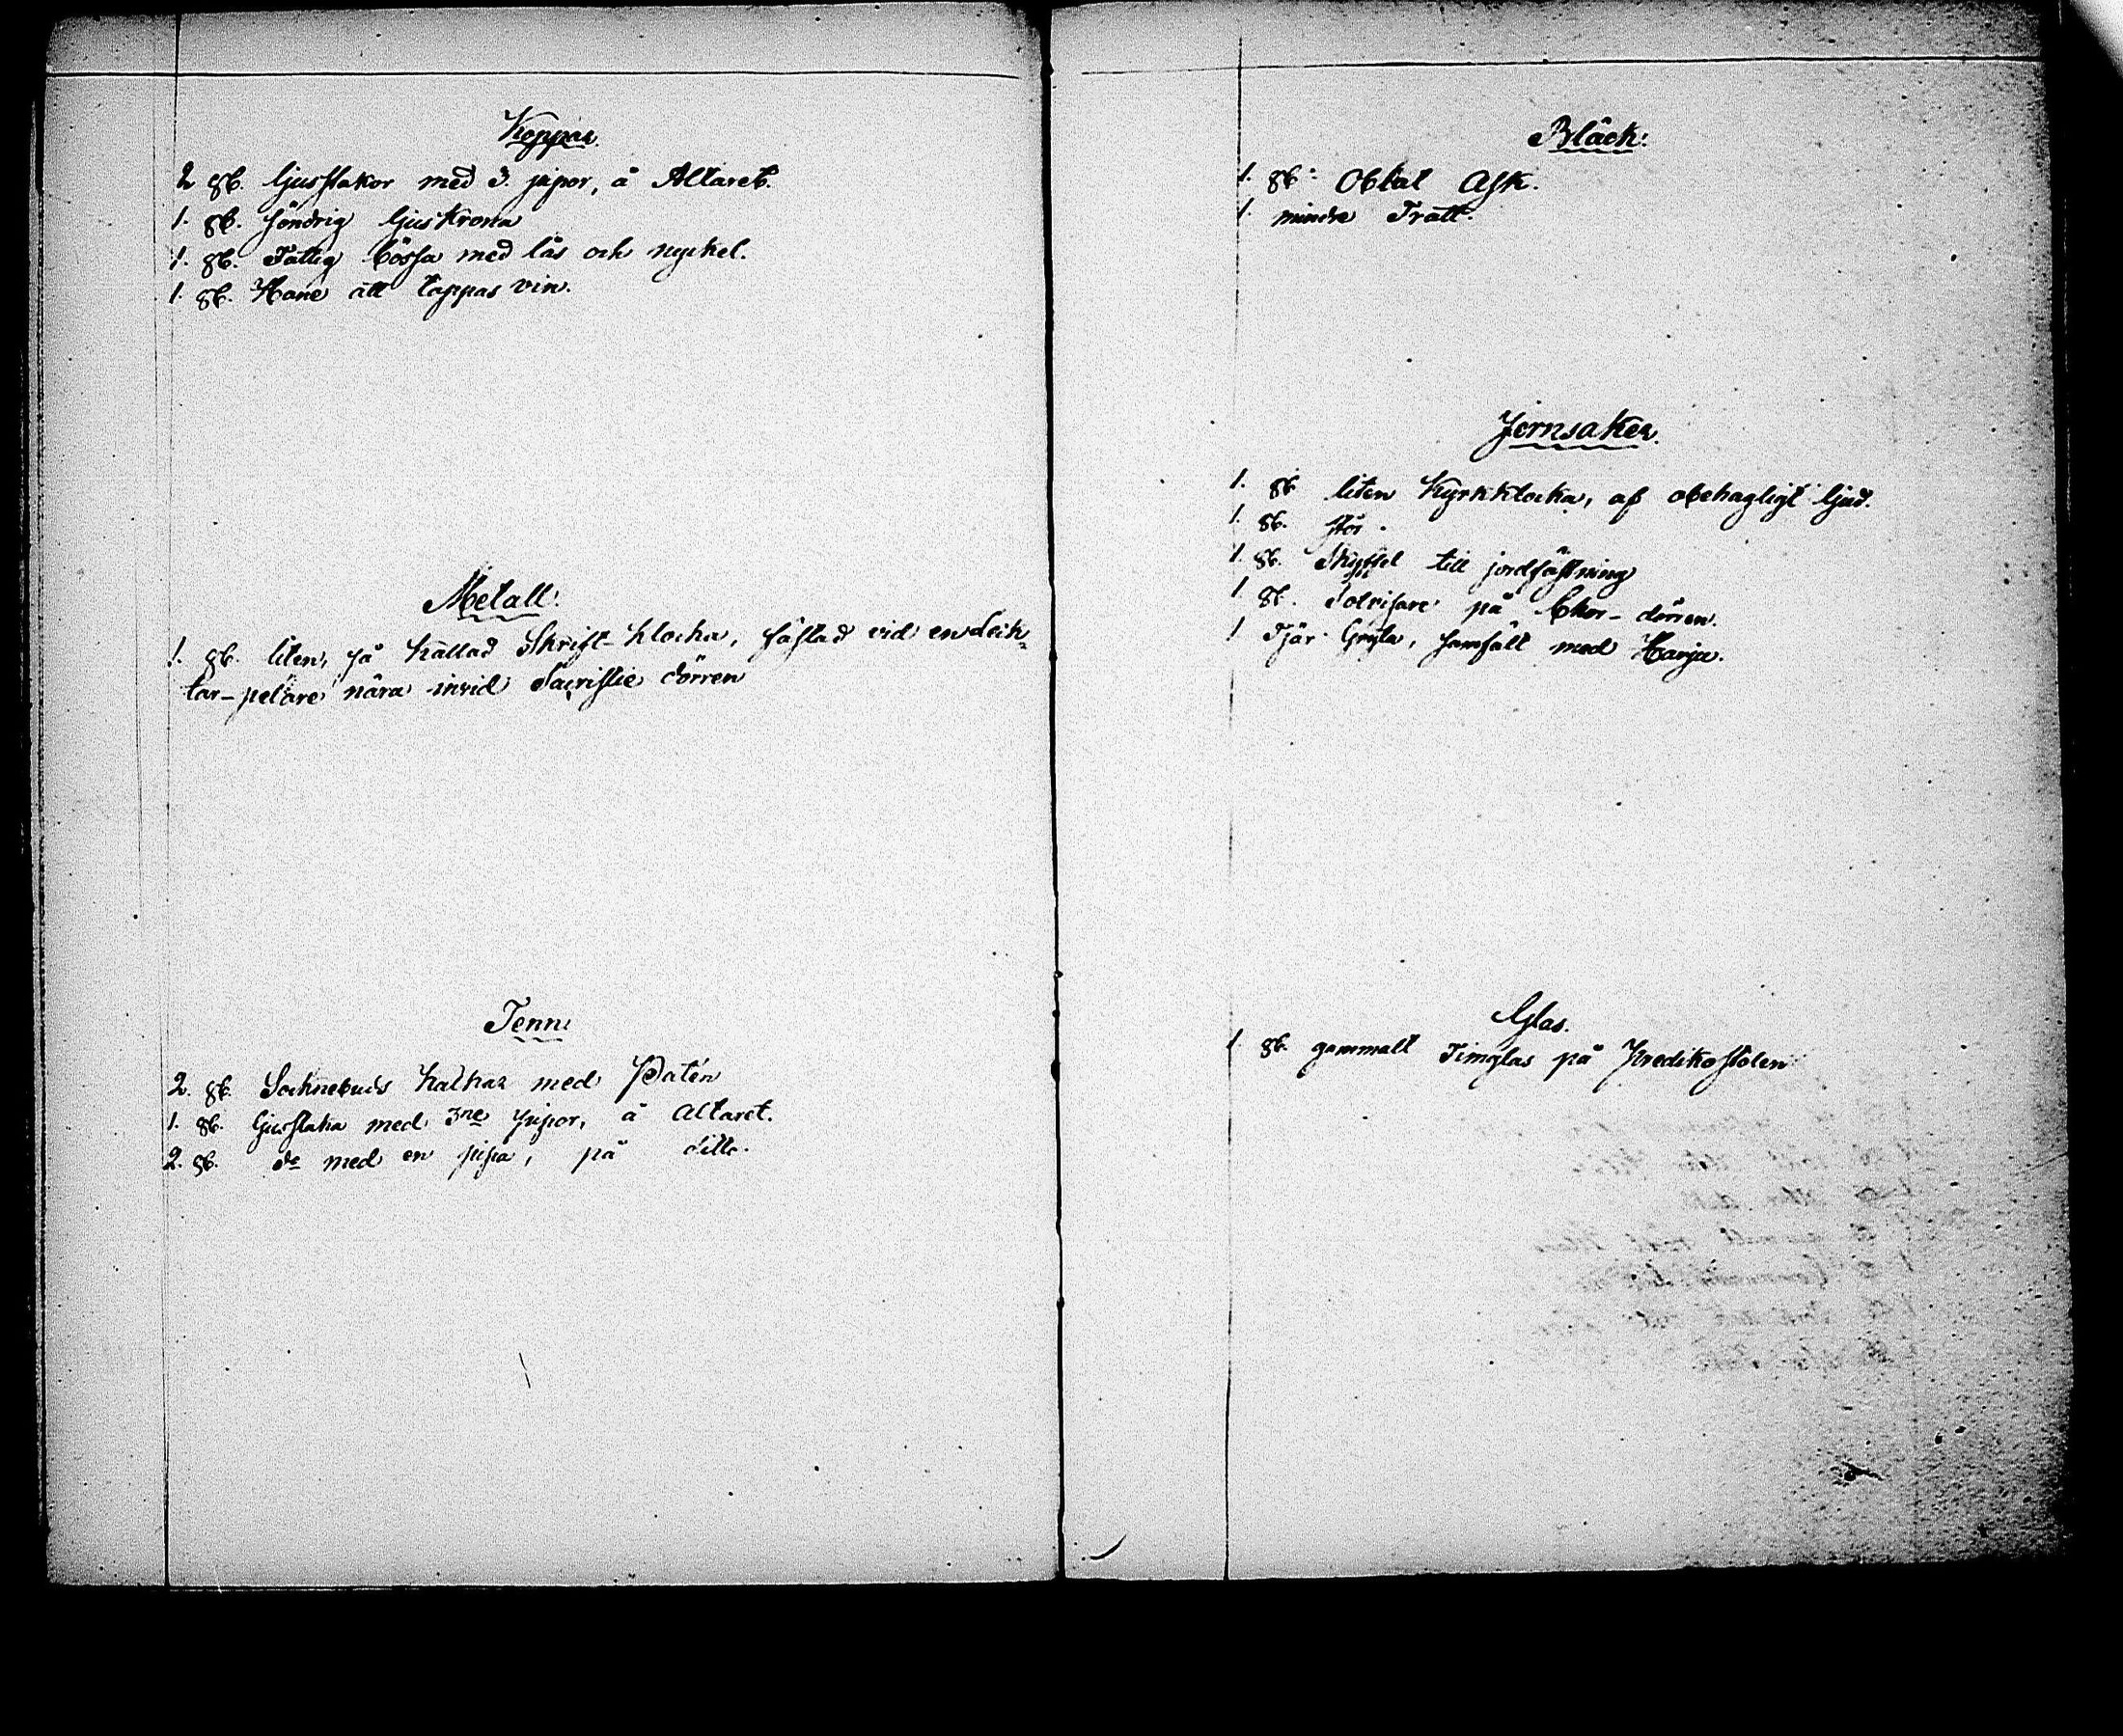 Koppar.
2 st. ljusstakar med 3. pipor, å Altaret.
1. st. söndrig ljuskrona
1. st. Fattig bössa med lås och nyckel.
1. st. Hane att tappas vin.
Metall:
1. st. liten, så kallad Skrift-klocka, fästad vid en Leck-
tar-pelare nära invid Sacristie dörren
Tenn:
2. st. Sochnebuds kalkar med Patén
1. st. ljusstaka med 3ne pipor, å Altaret.
2. st. do med en pipa, på ditto.
Bläck:
1. st. Oblat Ask.
1. mindre Tratt.
Jernsaker.
1. st liten Kyrkklocka, af obehagligt ljud.
1. st. stör.
1. st. Skyffel till jordfästning
1 st. Solvisare på Chor-dörren.
1 Tjär Gryta, samfält med Hanja.
Glas.
1 st. gammalt Timglas på Predikostolen